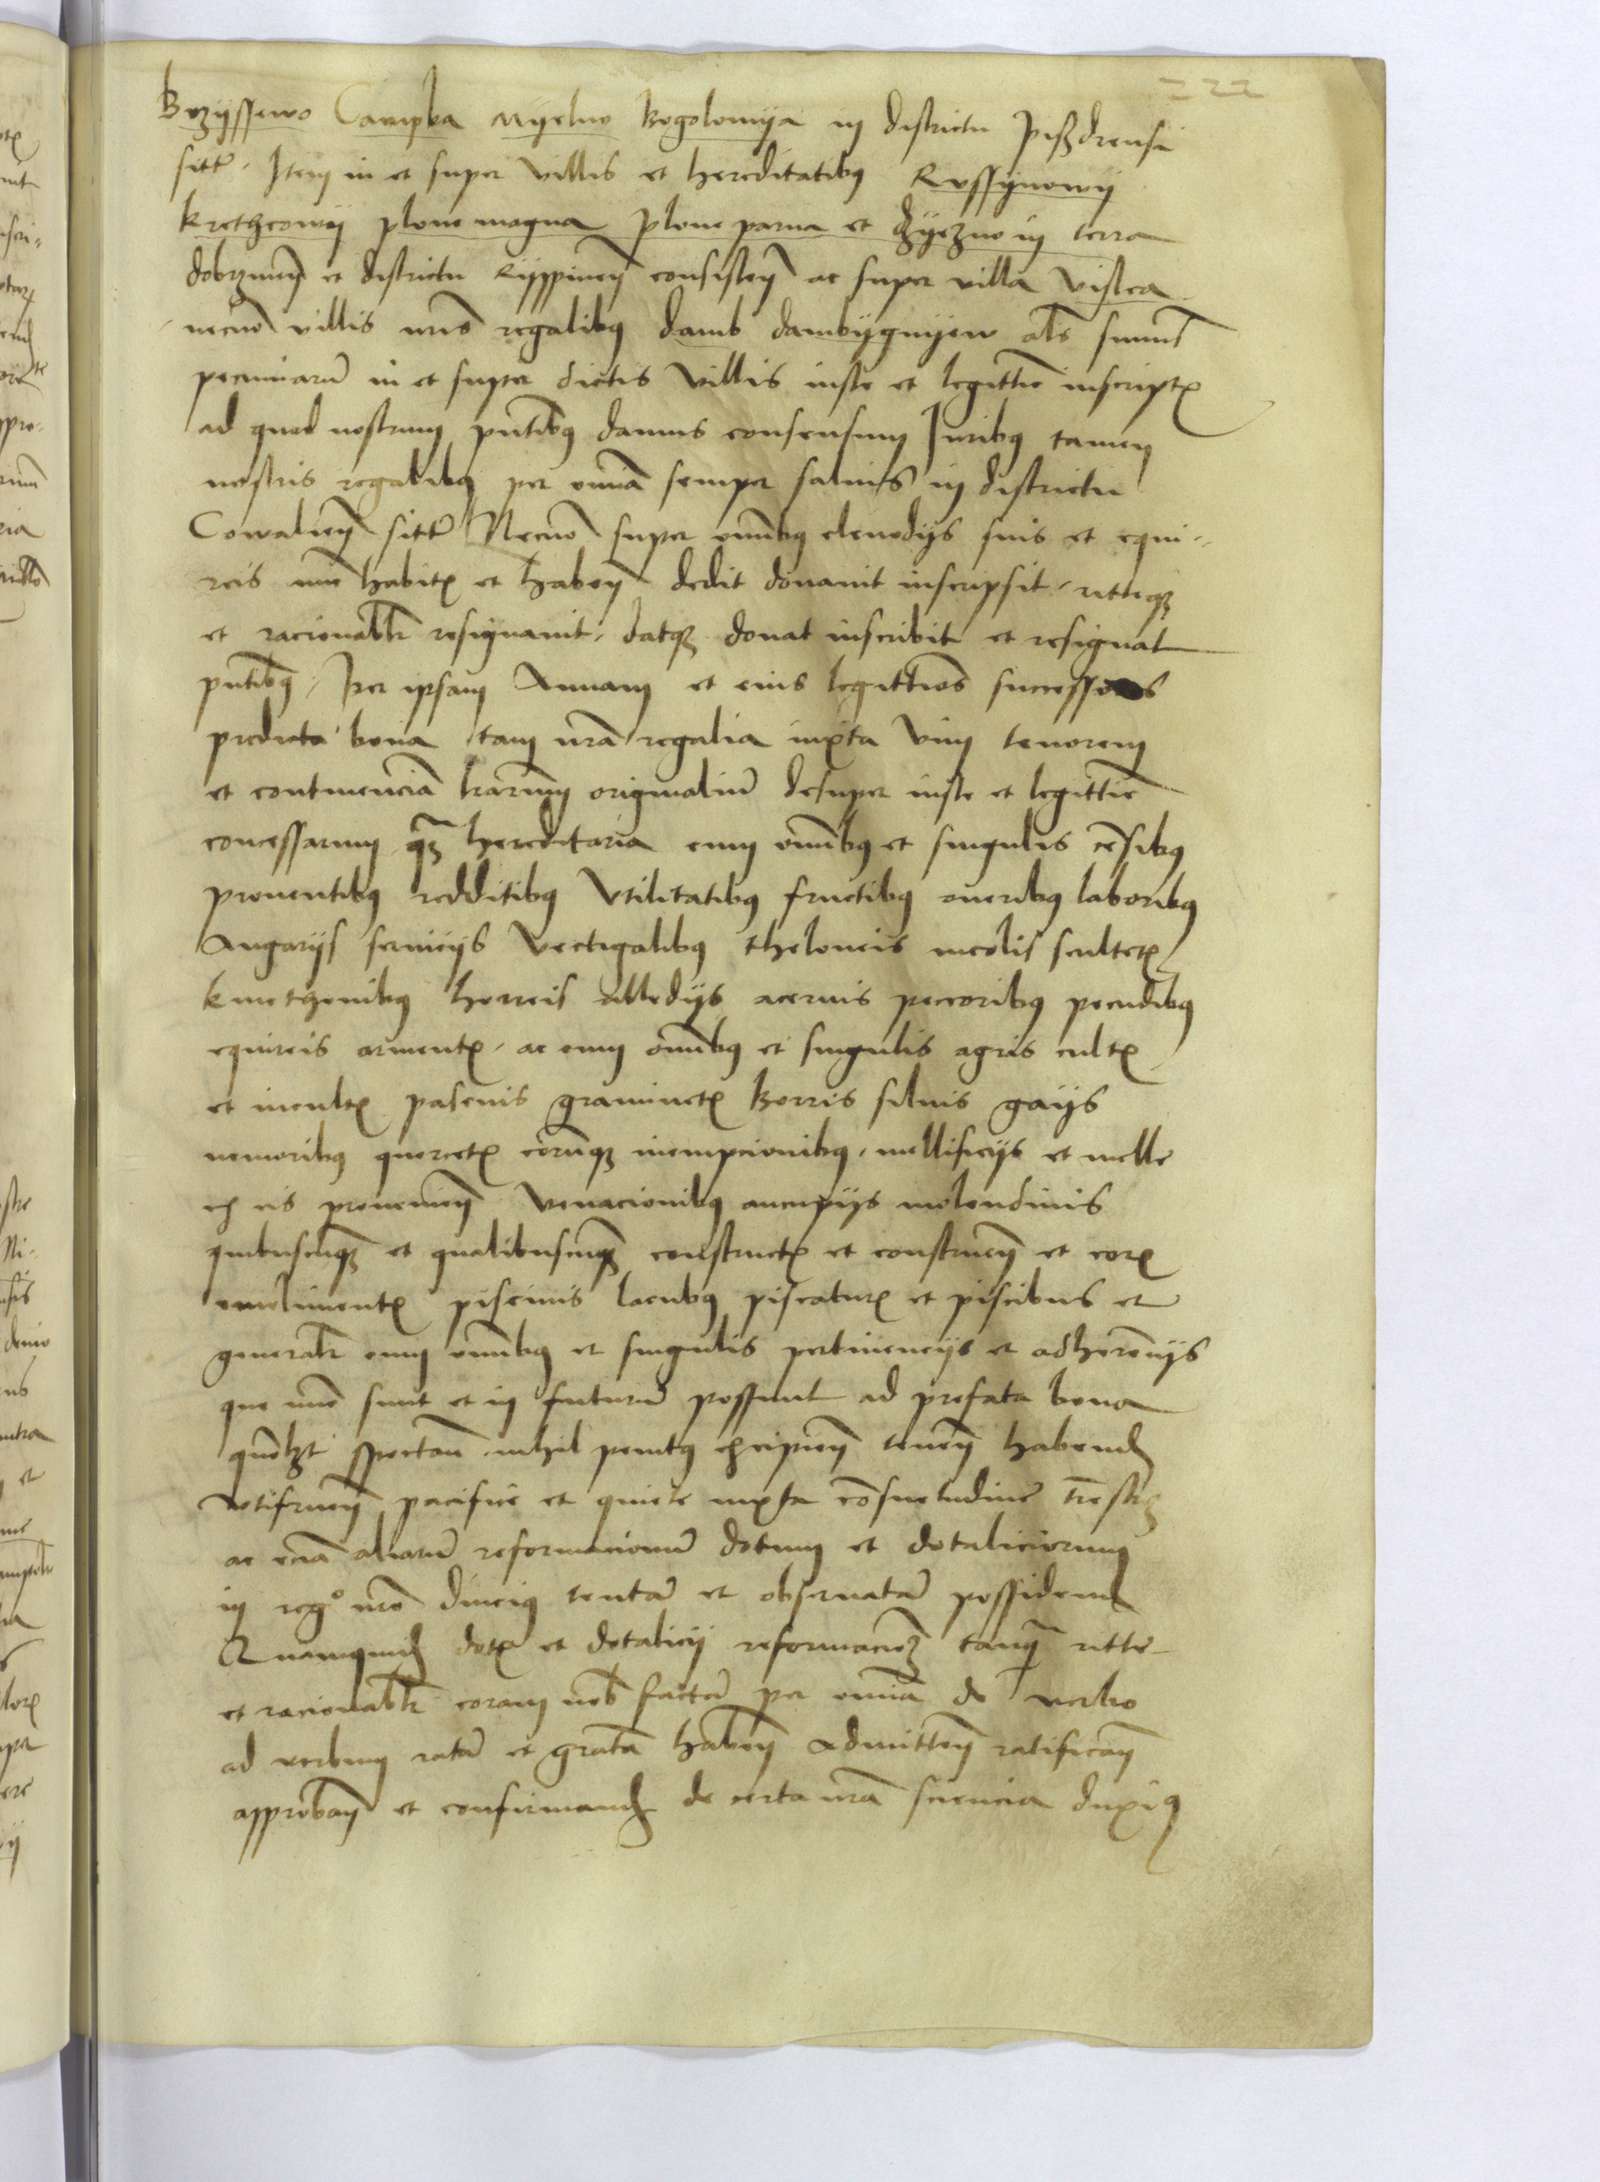 222
Brzyssewo Campka Myelno Bogolomya in districtu Pisdrensi
sitis. Item in et super villis et hereditatibus Russynowy
Kretheowy plone magna plone parva et Czyezno in terra
dobrzinen et districtu Ryppinen consisten ac super villa Vistca
necno villis nris regalibus damb dambygnyew als summis
pecuniaru in et super dictis villis iuste et legittime inscriptis
ad quod nostrum pntibus damus consensum Juribus tamen
nostris regalibus per omnia semper salvis in districtu
Cowalien sitis Necno super omnibus clenodys suis et equi-
reis nunc habitis et haben dedit donavit inscripsit, ritteque
et racionabilr resignavit, datque donat inscribit et resignat
pntibus, Per ipsam Annam et eius legittimos successores
predicta bona tam nra regalia iuxta vim tenorem
et continencia lrarum originaliu desuper iuste et legittime
concessarum quam hereditaria cum omnibus et singulis censibus
proventibus redditibus Utilitatibus fructibus oneribus laboribus
Angarys servicys Vectigalibus theloneis incolis scultetis
kmethonibus horreis allodys acervis peccoribus pecudibus
equireis armentis, ac cum omnibus et singulis agris cultis
et incultis pascuis graminetis Borris silvis gays
nemoribus quercetis eorumque inempcionibus, mellificys et melle
ex eis provenien Venacionibus aucupys molendinis
quibuscunque et qualibuscunque constructis et construen et eoru
emolimentis piscinis lacubus piscaturis et piscibus et
generalr cum omnibus et singulis pertinencys et adherencys
que nunc sunt et in futuru possunt ad prefata bona
quomlzt spectan, nihil penitus excipien tenen habend
utifruen pacifice et quiete iuxta consuetudine terrestrem
ac eciam aliaru reformacionu dotum et dotaliciorum
in regno nro diucius tenta et observata possidend
Quamquid dotis et dotalicy reformacionem tanquam ritte
et racionabilr coram nob facta per omnia de verbo
ad verbum rata et grata haben Admitten ratifican
approban et confirmand de certa nra sciencia duximus